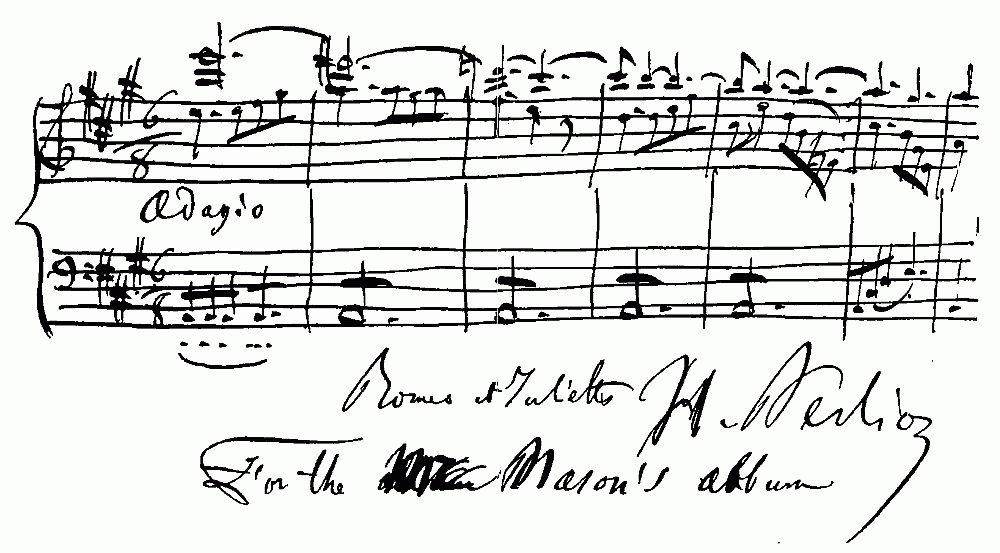 6
8
Adagio
6
8
Romeo et Juliette H. Berlioz
For the Mason's album